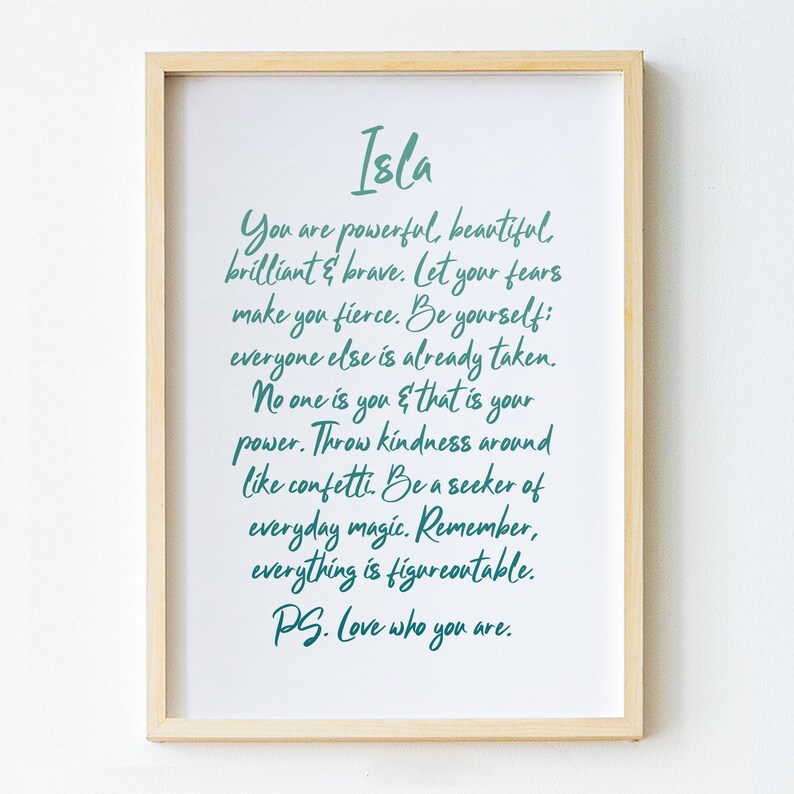 Isla
You are powerful, beautiful,
brilliant & brave. Let your fears
make you fierce. Be yourself;
everyone else is already taken.
No one is you & that is your
power. Throw kindness around
like confetti. Be a seeker of
everyday magic. Remember,
everything is figureoutable.
PS. Love who you are.